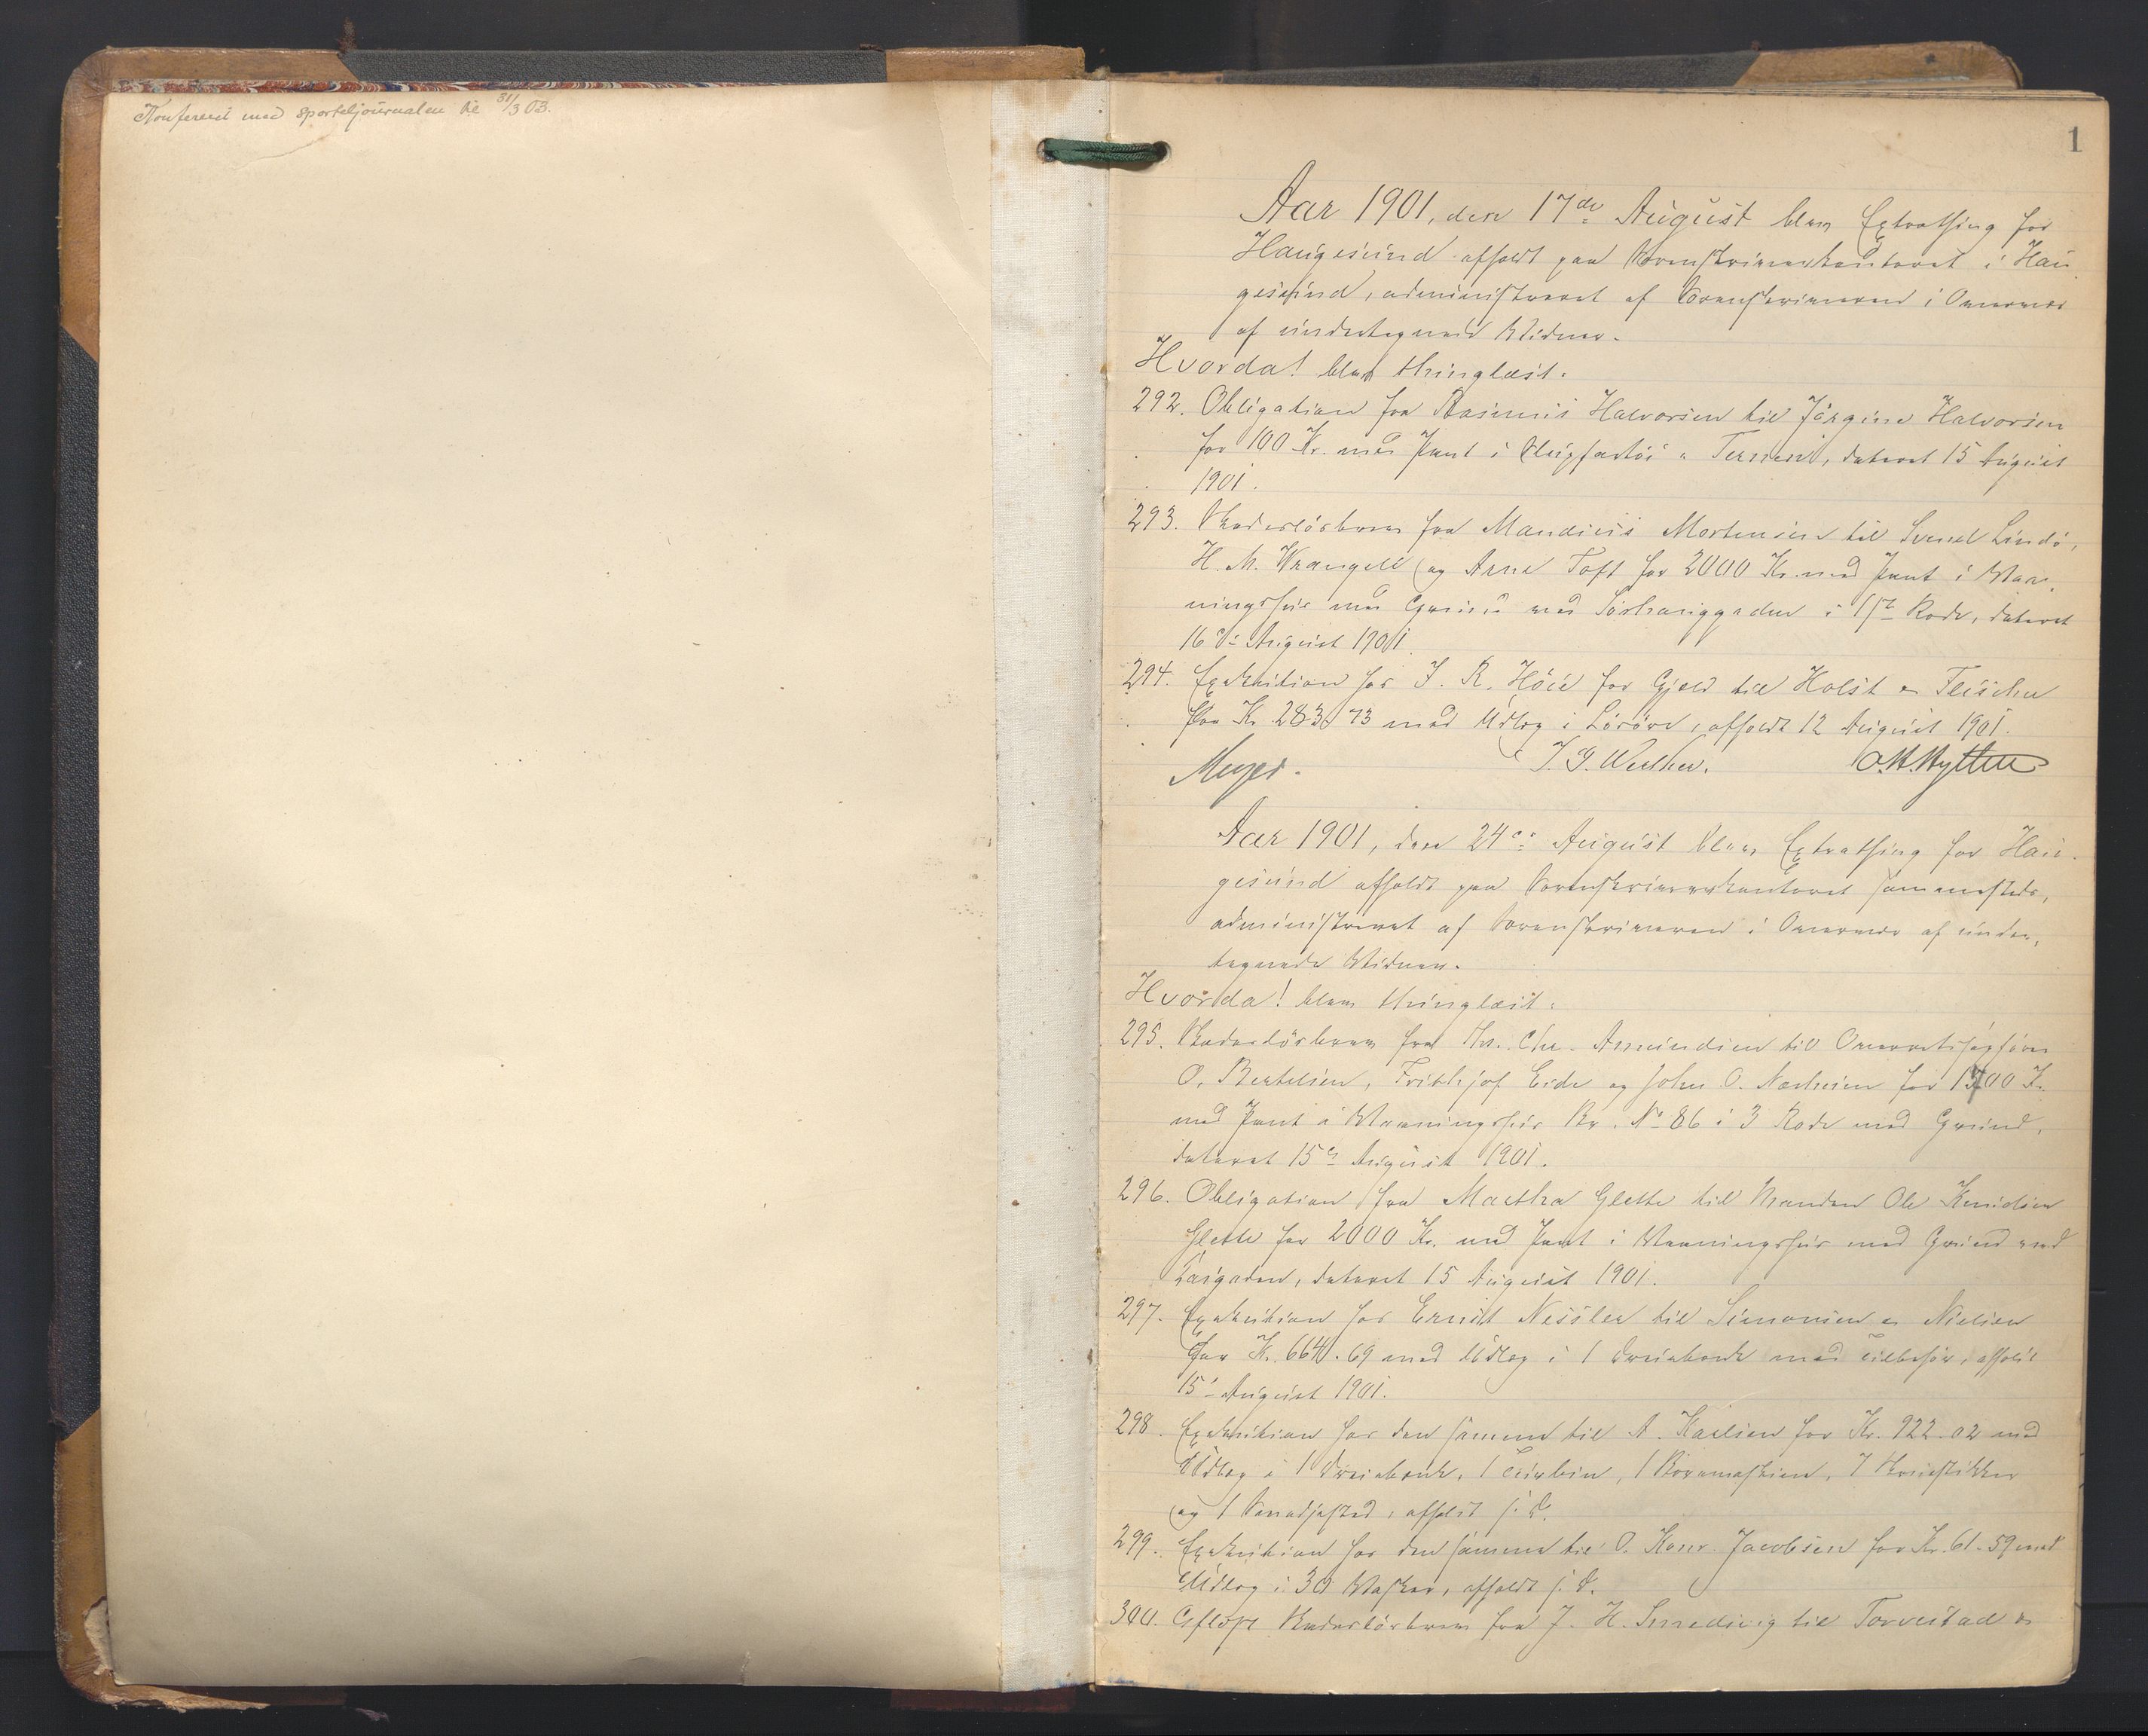 Konfereret med Sporteljournalen til 31/3 03.
1
Aar 1901, den 17de August blev Extrathing for
Haugesund afholdt paa Sorenskriverkontoret i Hau
gesund, administreret af Sorenskriveren i Overvær
af undertegnede Vidner.
Hvorda! blev thinglæst:
292. Obligation fra Rasmus Halvorsen til Jörgine Halvorsen
for 100 Kr. med Pant i "Ternen", dateret 15 August
1901.
293. Skadeslösbrev fra Mandius Mortensen til Svend Lindö,
H. M. Wrangell og Arne Toft for 2000 Kr. med Pant i Vaa-
ningshus med Grund ved Sörhauggaden i 1ste Rode, dateret
16de August 1901.
294. Exekution hos J. R. Höie for Gjæld til Holst & Fleischer
stor Kr. 283.73 med Udlæg i Lösöre, afholdt 12 August 1901.
Meyer. J. G. Wulher. O. H. Hytten
Aar 1901, den 24de August blev Extrathing for Hau-
gesund afholdt paa Sorenskriverkontoret sammesteds,
administreret af Sorenskriveren i Overvær af under-
tegnede Vidner.
Hvorda! blev thinglæst:
295. Skadeslösbrev fra Chr. Amundsen til Overretssagförer
O. Bertelsen, Frithjof Eide og John O. Næsheim for 1500 Kr.
med Pant i Vaaningshus Br. No 86 i 3 Rode med Grund,
dateret 15de August 1901.
296. Obligation fra Martha Glette til Ole Knudsen
Glette for 2000 Kr. med Pant i Vaaningshus med Grund ved
dateret 15 August 1901.
297. Exekution hos Ernst Nessler til Simonsen & Nielsen
for Kr. 664.69 med Udlæg i 1 Dreiebænk med Tilbehör, afholdt
15de August 1901.
298. Exekution hos den samme til A. Karlsen for Kr. 922.02 med
Udlæg i 1 Dreiebænk, 1 Turbin, 1 Boremaskine, 7 Skruestikker
og 1 afholdt s. D.
299. Exekution hos den samme til O. Konr. Jacobsen for Kr. 61.59 med
Udlæg i 30 afholdt s. D.
300. Aflyst Skadeslösbrev fra J. H. Smedsvig til Torvestad &